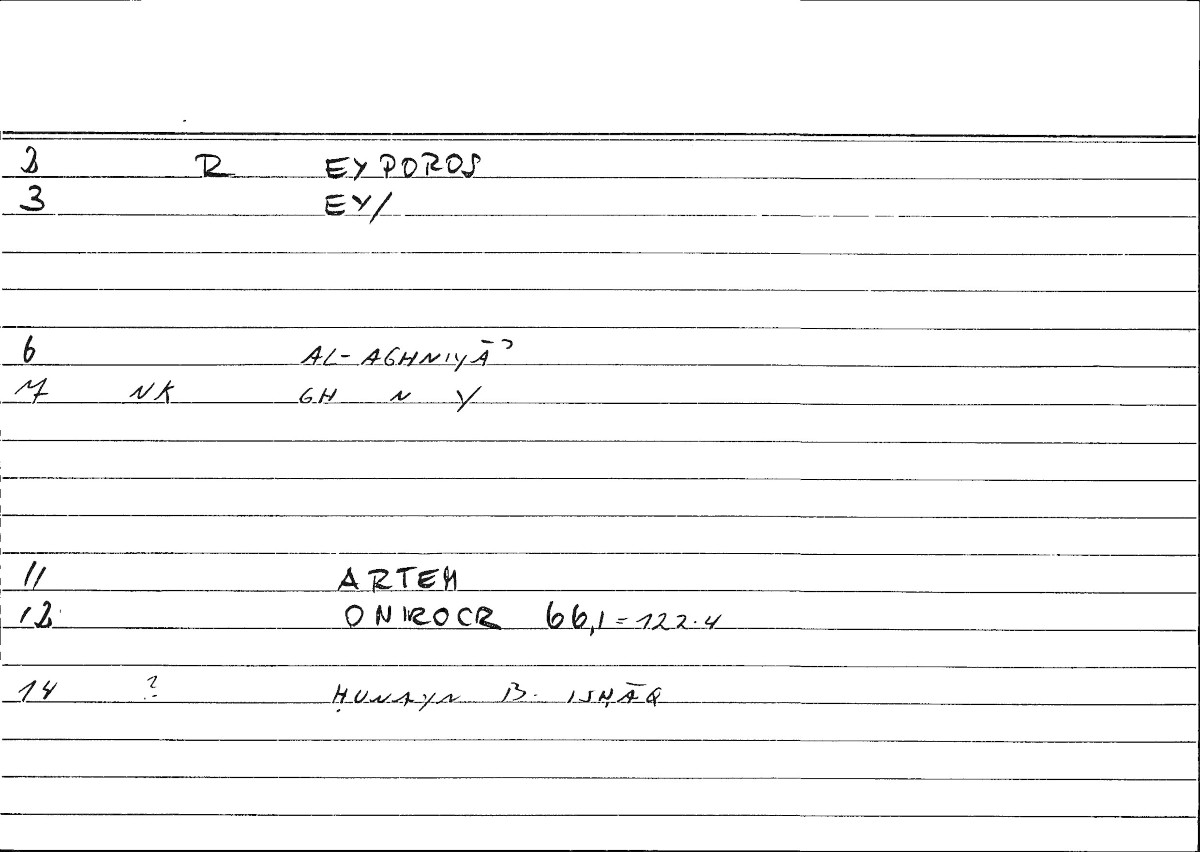 2 R EYPOROS
3 EY/
6 AL-AGHNIYĀʾ
7 NK GH N Y
11 ARTEM
12 ONIROCR 66,1 = 122.4
14 ? ḤUNAYN B. ISḤĀQ